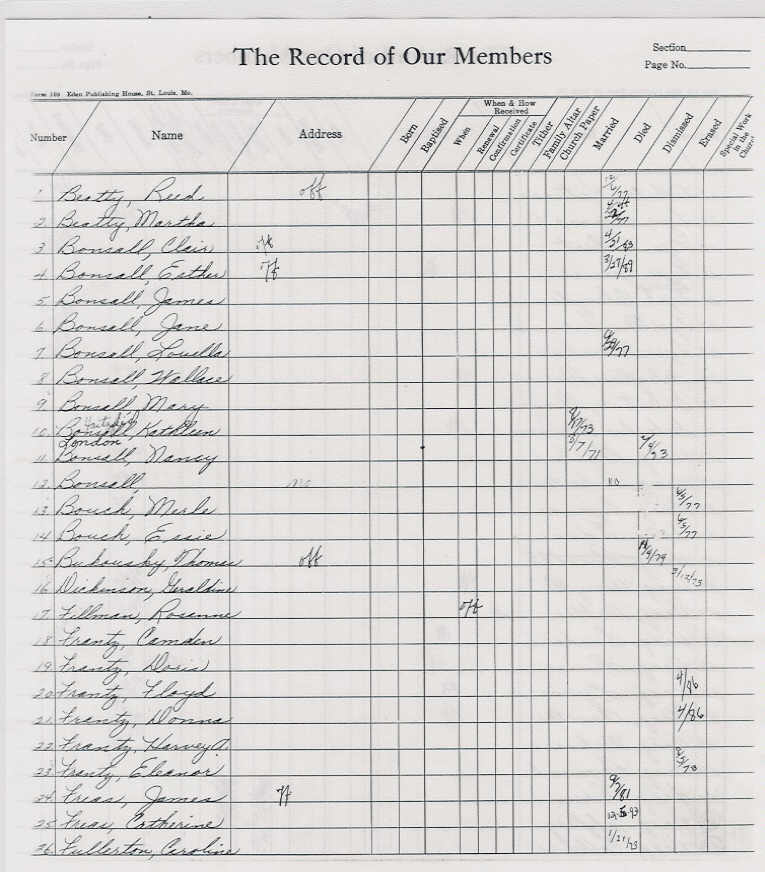 The Record of Our Members
Section
Page No.
Form 109 Eden Publishing House, St. Louis, Mo.
Number Name Address Born Baptised When & How Received When Renewal Confirmation Certificate Tither Family Altar Church Paper Married Died Dismissed Erased Special Work in the Church
1 Beatty, Reed off
2 Beatty, Martha off
3 Bonsall, Clair off 4/21/83
4 Bonsall, Esther off 3/27/89
5 Bonsall, James
6 Bonsall, Jane
7 Bonsall, Louella
8 Bonsall, Wallace
9 Bonsall, Mary
10 Bonsall, Kathleen
London 3/7/71
11 Bonsall, Nancy
12 Bonsall,
13 Bouch, Merle 6/5/77
14 Bouch, Essie 6/5/77
15 Bukousky, Thomas off
16 Dickinson, Geraldine 3/12/73
17 Fillman, Rosenne off
18 Frantz, Camden
19 Frantz, Doris
20 Frantz, Floyd 4/86
21 Frantz, Donna 4/86
22 Frantz, Harvey A.
23 Frantz, Eleanor
24 Freas, James off
25 Freas, Catherine
26 Fullerton, Caroline 1/21/73